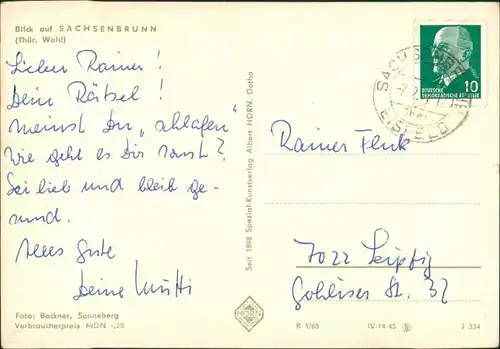 Blick auf SACHSENBRUNN
(Thür. Wald)
Lieber Rainer!
Dein Rätsel!
meinst Du „schlafen"
Wie geht es Dir sonst?
Sei lieb und bleib ge-
sund.
Alles Gute
Deine Mutti
Foto: Bockner, Sonneberg
Verbraucherpreis MDN -,20
Seit 1898 Spezial-Kunstverlag Albert HORN, Gotha
HORN
DEUTSCHE
DEMOKRATISCHE REPUBLIK
10
EISFELD
Rainer
7022 Leipzig
Gohliser St. 32
R 1/65
IV-14-45
J 334